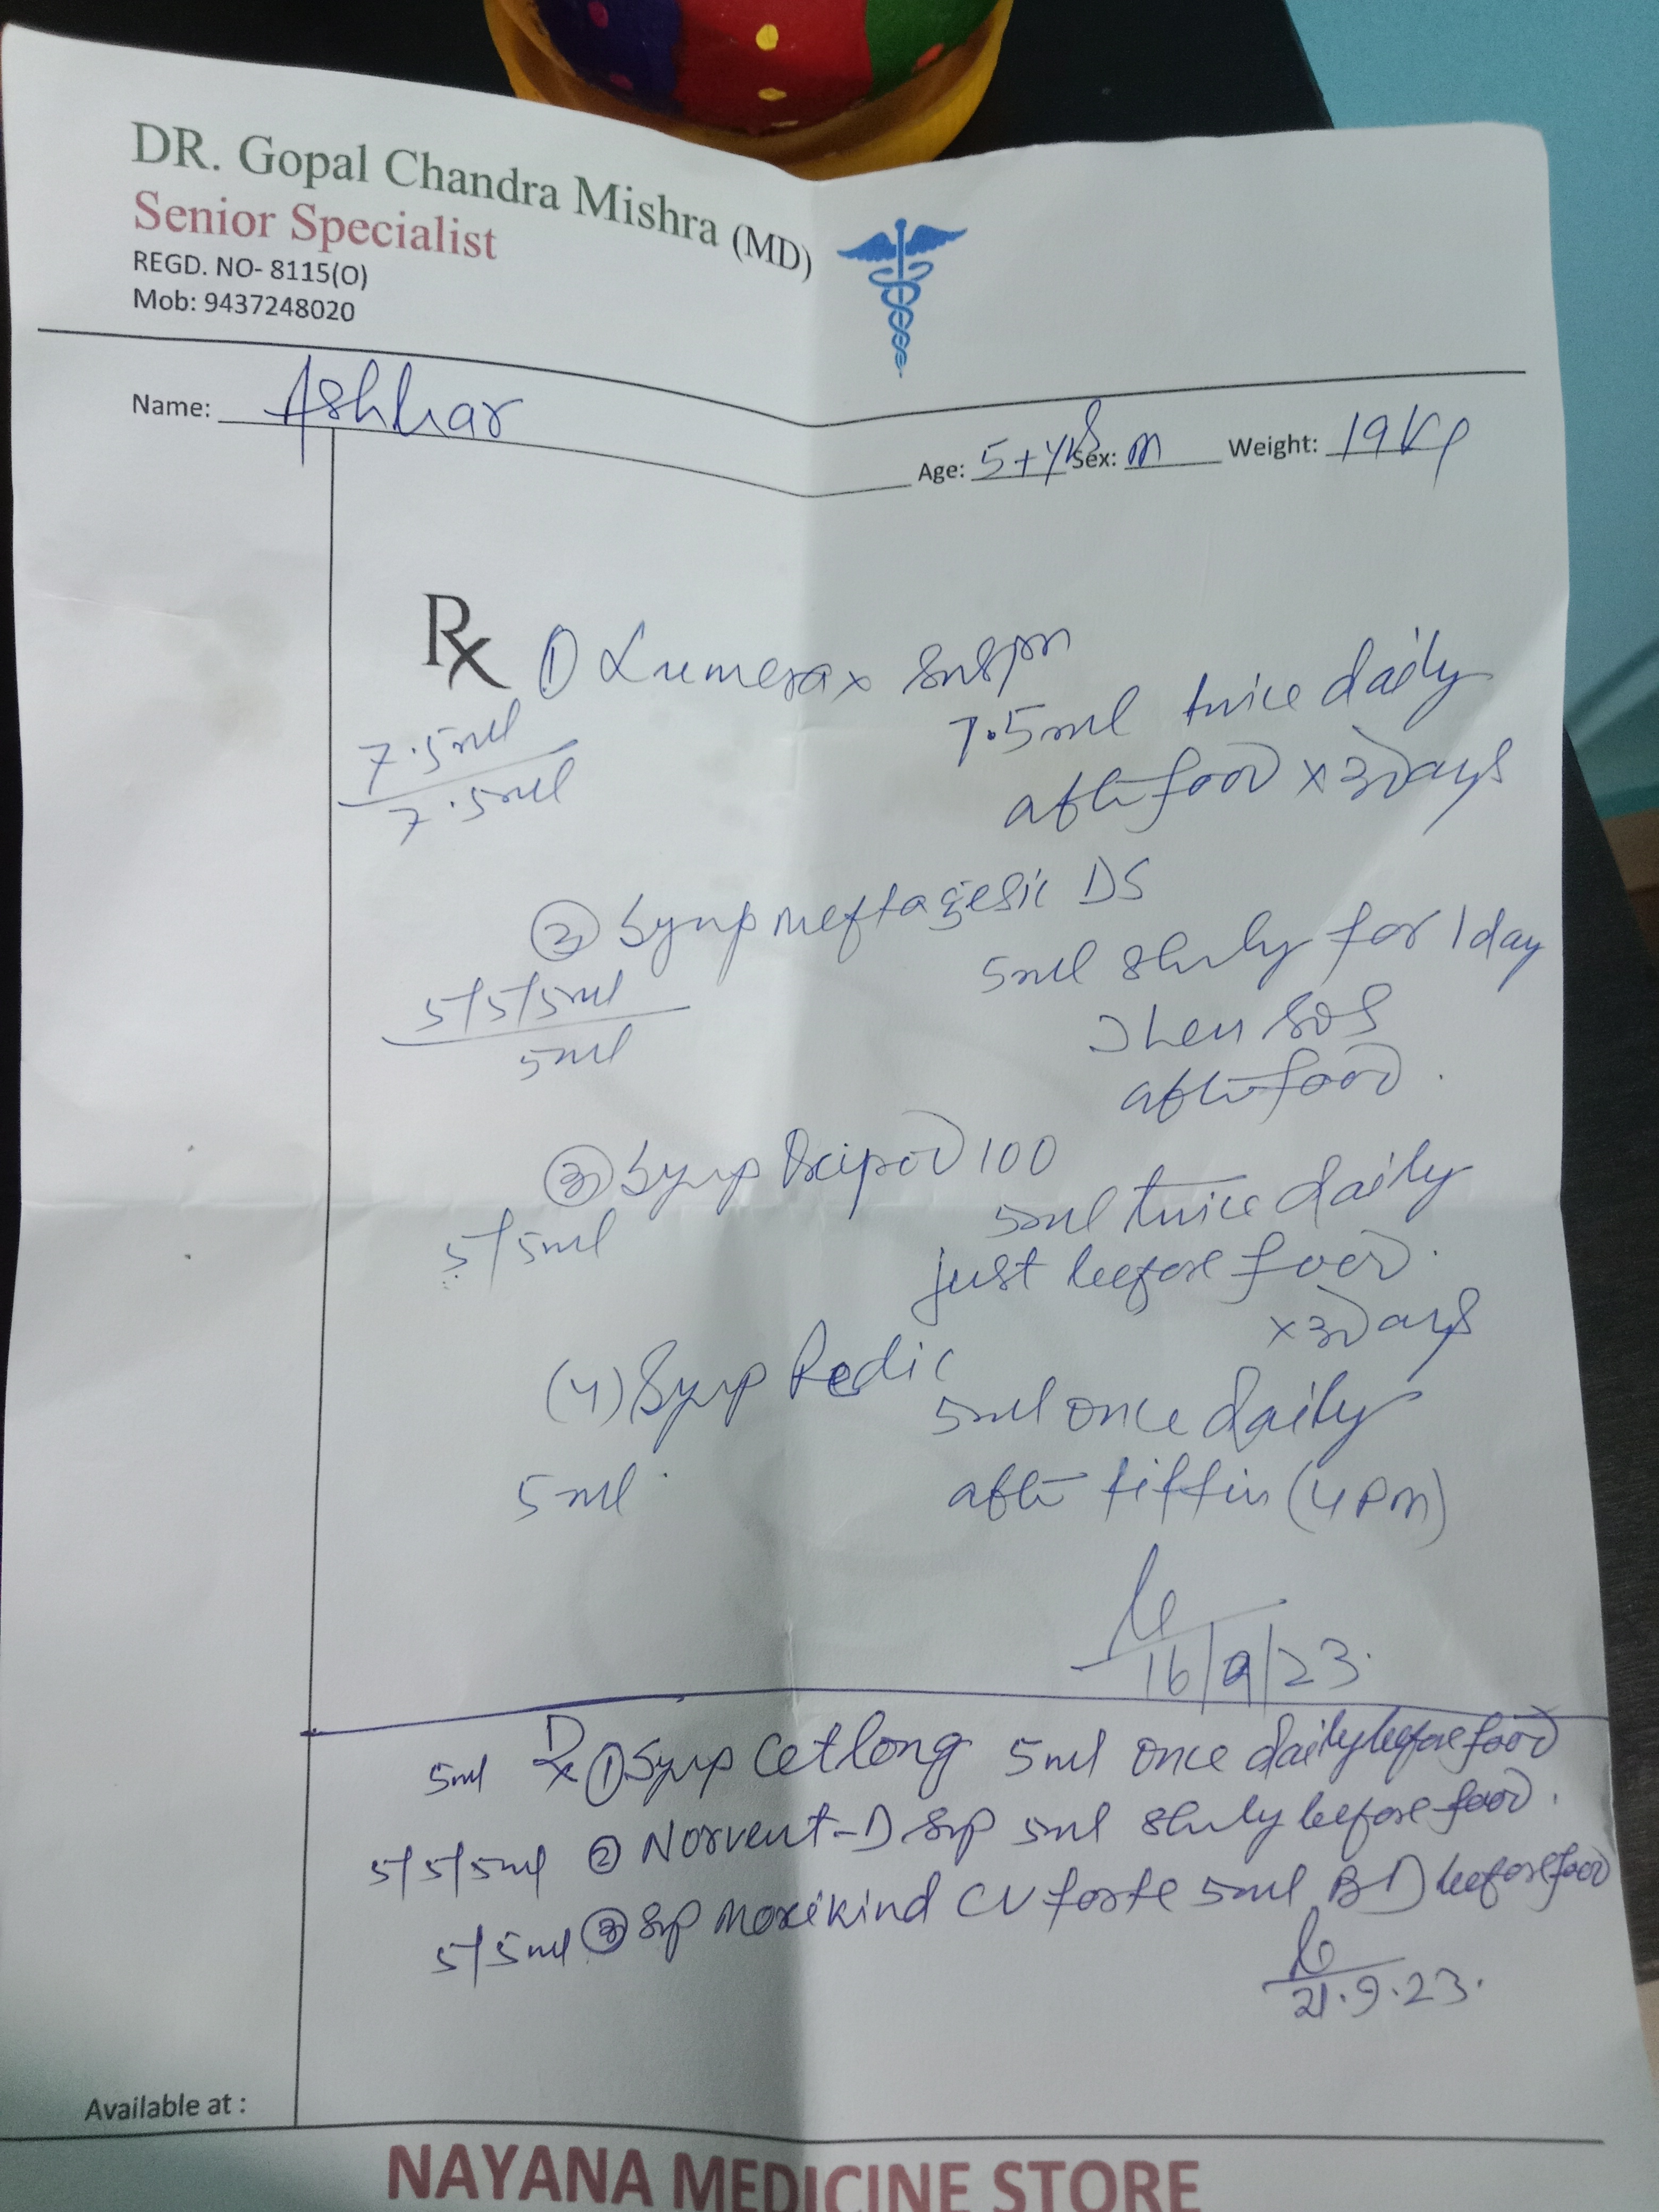 DR. Gopal Chandra Mishra (MD)
Senior Specialist
REGD. NO- 8115(O)
Mob: 9437248020
Name: Ashhar
Age: 5+yrs Sex: M Weight: 19 Kg
Rx ① Lumerax suspn
7.5ml twice daily
after food x 3 days
7.5ml
7.5ml
② Syrup meftagesic DS
5ml 8hrly for 1 day
then SOS
after food.
5/5/5ml
5ml
③ Syrup 100
5ml twice daily
just before food.
x 3 days
5/5ml
(4) Syrup Pedic
5ml once daily
after tiffin (4 PM)
5ml
16/9/23.
5ml Rx ① Syrup Cetlong 5ml once daily before food
5/5/5ml ② Norvent-D syp 5ml 8hrly before food.
5/5ml ③ Syp Moxikind CV forte 5ml BD before food
21.9.23.
Available at :
NAYANA MEDICINE STORE